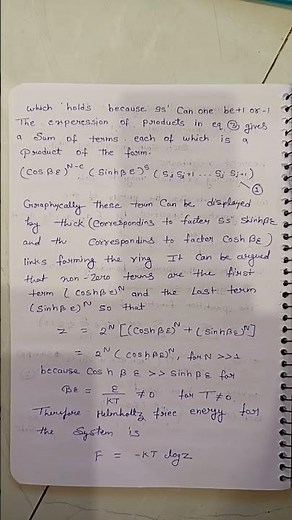 which holds because ss' Can one be +1 or -1
The experession of products in eq ② gives
a Sum of terms each of which is a
product of the form:
(Cos βε)^N-c (Sinh βε)^s (Si Si+1 ... Sj Sj-1)
①
Graphycally these term Can be displayed
by thick (Corresponding to factor ss' Skinh βε
and th Corresponding to factor Cosh βε)
links forming the ring It Can be argued
that non-Zero terms are the first
term (cosh βε)^N and the Last term
(Sinh βε)^N so that
Z = 2^N [(Cosh βε)^N + (Sinh βε)^N]
= 2^N (cosh βε)^N, for N >> 1
because Cosh βε >> Sinh βε for
βε = ε/KT ≠ 0 for T ≠ 0.
Therefore Helmholtz free energy for
the System is
F = -KT log Z